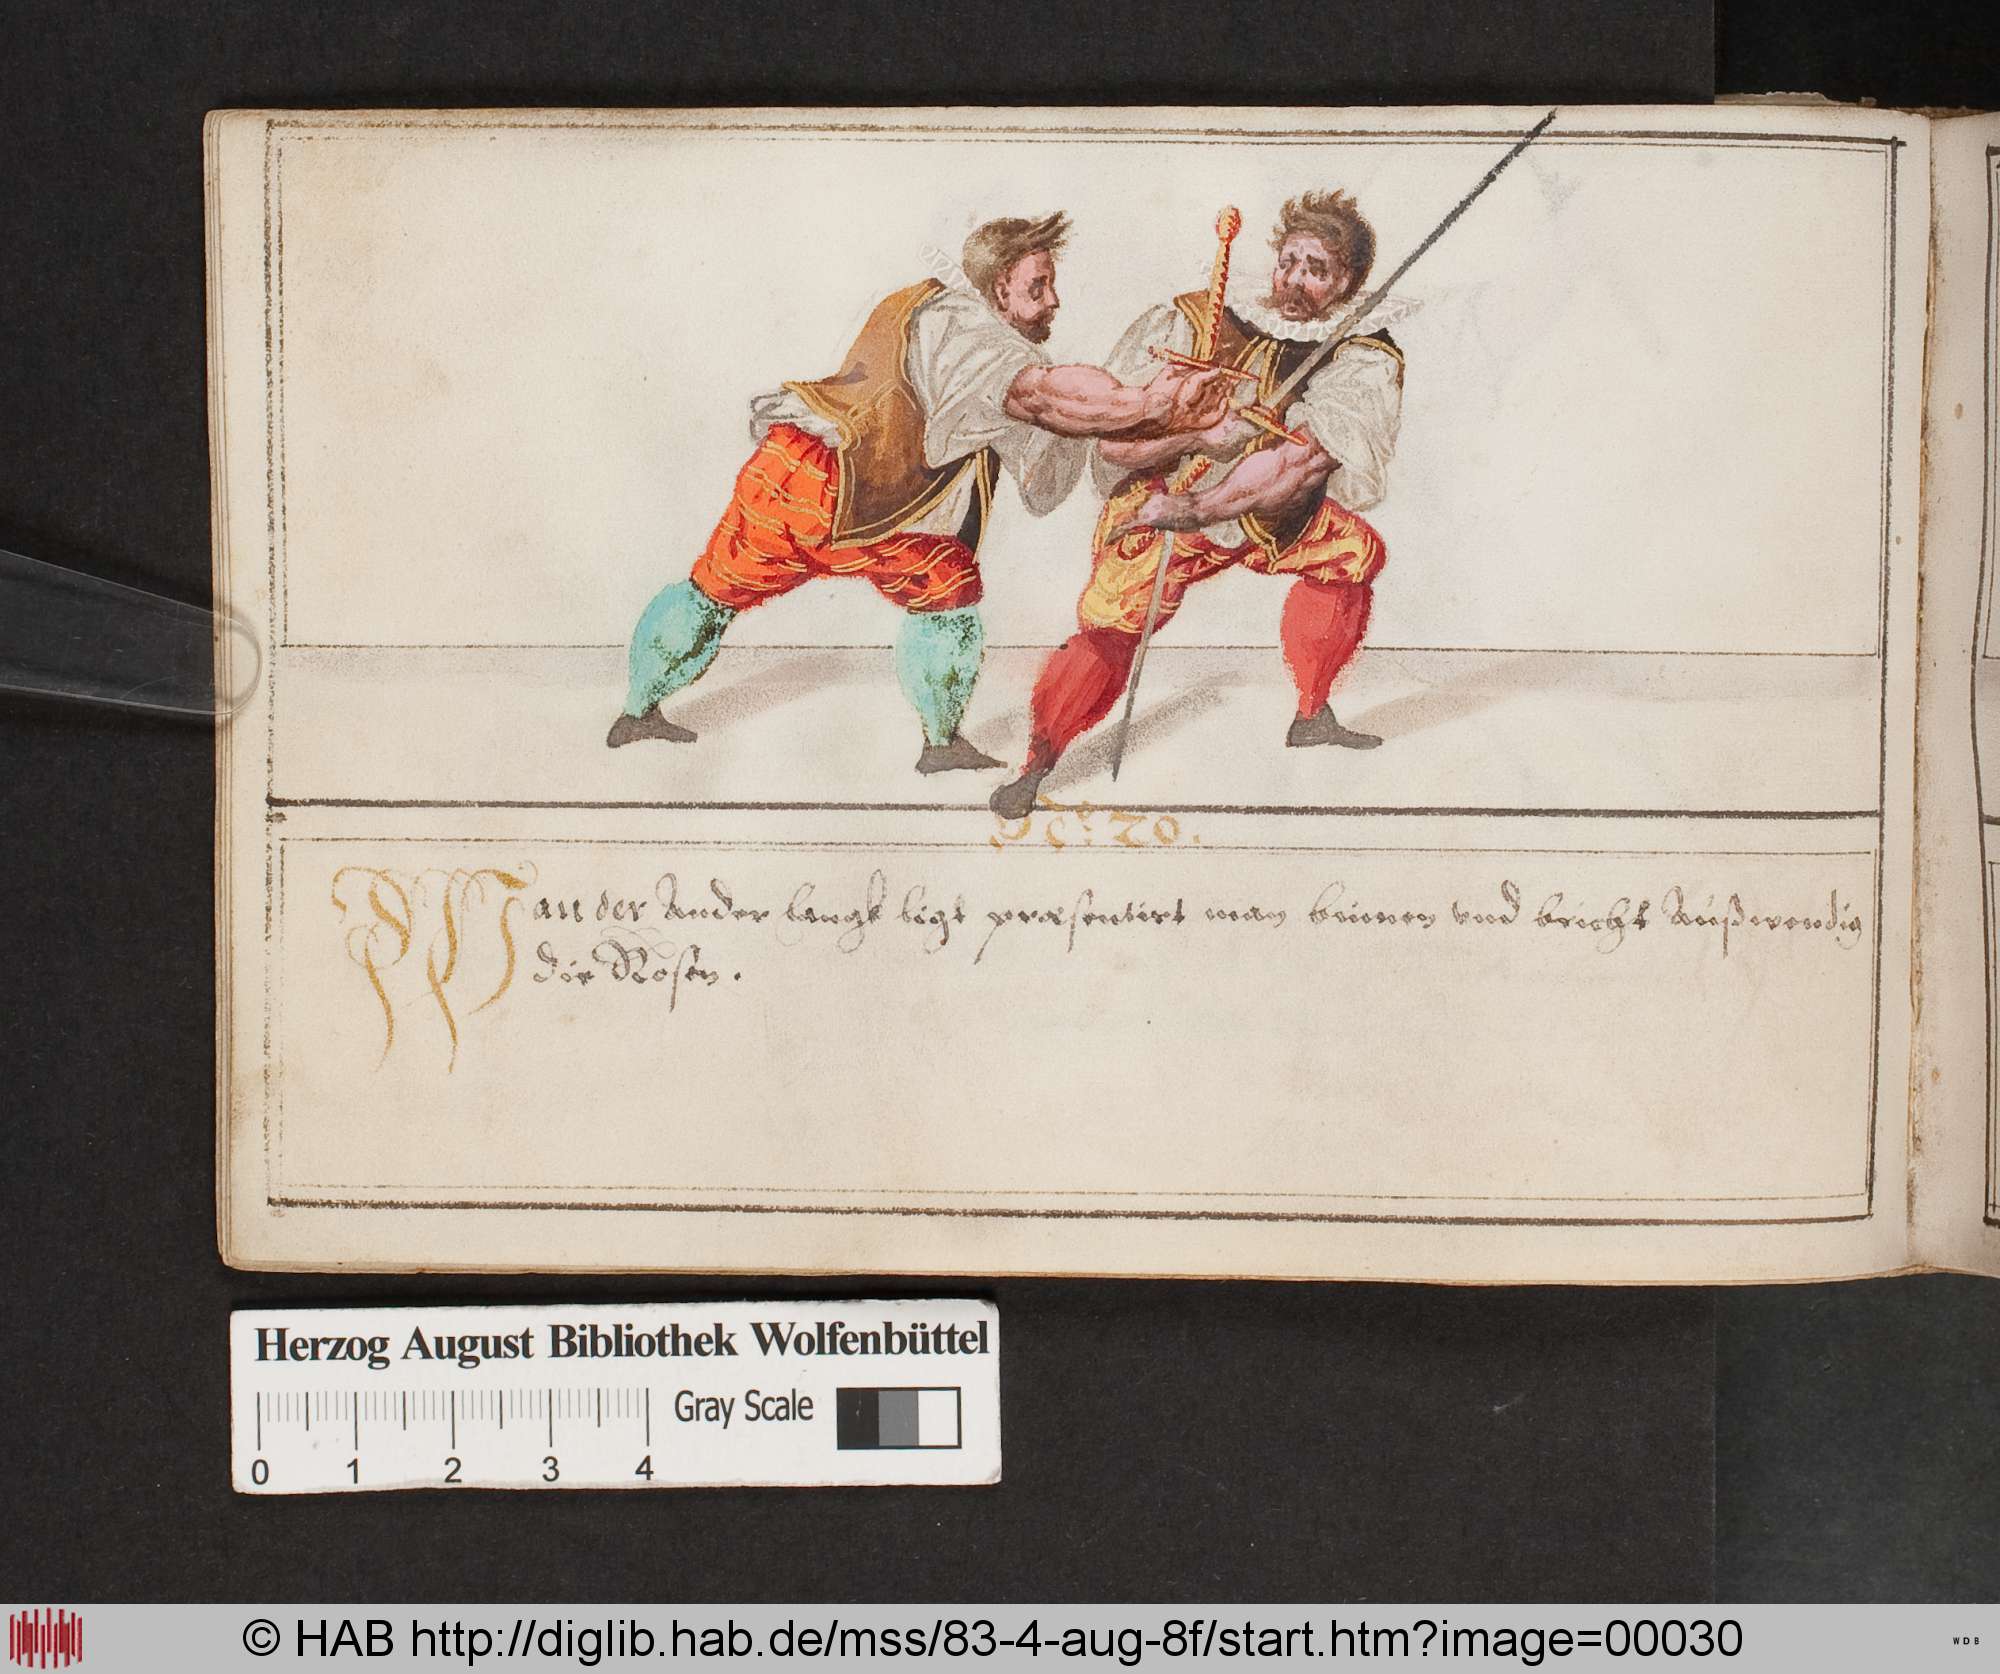 No: 20.
Wan der Ander langk ligt præsentirt man binnen vnd bricht Außwendig
die Rosen.
Herzog August Bibliothek Wolfenbüttel
Gray Scale
0 1 2 3 4
© HAB http://diglib.hab.de/mss/83-4-aug-8f/start.htm?image=00030
WDB